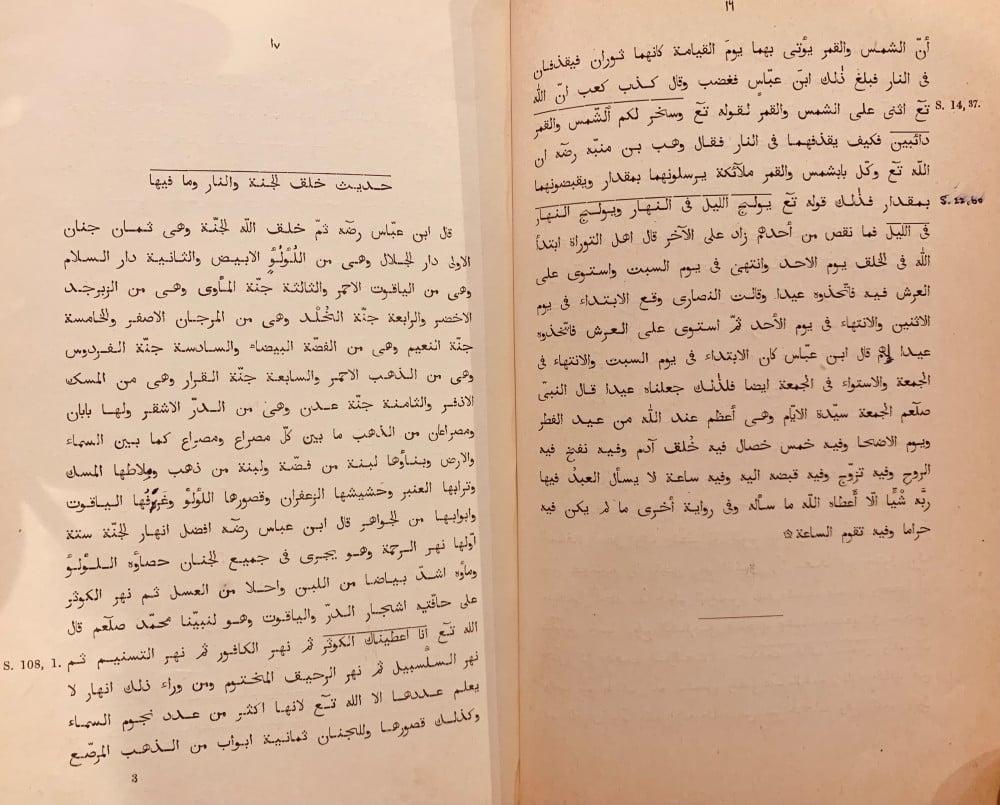 ١٦
أنّ الشمس والقمر يؤتى بهما يومَ القيامة كانهما ثوران فيقذفان
فى النار فبلغ ذٰلك ابنَ عبّاس فغضب وقال كذب كعب انّ الله
تع اثنى على الشمس والقمر لقوله تع وسخر لكم ٱلشّمس والقمر
S. 14, 37.
دائبين فكيف يقذفهما فى النار فقال وهب بن منبّه رضه ان
الله تع وكّل بالشمس والقمر ملائكة يرسلونهما بمقدار ويقبضونهما
بمقدار فذٰلك قوله تع يولج الليل فى النهار ويولج النهار
S. 22, 60
فى الليل فما نقص من أحدهم زاد على الآخر قال اهل التوراة ابتدأ
الله فى الخلق يوم الاحد وانتهىٰ فى يوم السبت واستوى على
العرش فيه فاتّخذوه عيدا وقالت النصارى وقع الابتداء فى يوم
الاثنين والانتهاء فى يوم الأحد ثمّ استوى على العرش فاتّخذوه
عيدا لهم قال ابن عبّاس كان الابتداء فى يوم السبت والانتهاء فى
الجمعة والاستواء فى الجمعة ايضا فلذلك جعلناه عيدا قال النبىّ
صلعم الجمعة سيّدة الايّام وهى أعظم عند الله من عيد الفطر
ويوم الاضحا وفيه خمس خصال فيه خُلق آدم وفيه نفخ فيه
الروح وفيه تزوّج وفيه قبضه اليه وفيه ساعة لا يسأل العبدُ فيها
ربَّه شَيًّا الّا أَعطاه اللّه ما سأله وفى رواية أخرى ما لم يكن فيه
حراما وفيه تقوم الساعة
١٧
حديث خلق الجنة والنار وما فيها
قال ابن عبّاس رضه ثمّ خلق الله الجنّة وهى ثمان جنان
الاولى دار الجلال وهى من اللُؤْلُؤِ الابيض والثانية دار السلام
وهى من الياقوت الاحمر والثالثة جنّة المأوى وهى من الزبرجد
الاخضر والرابعة جنّة الخُلْد وهى من المرجان الاصفر والخامسة
جنّة النعيم وهى من الفضّة البيضاء والسادسة جنّة الفردوس
وهى من الذهب الاحمر والسابعة جنّة القرار وهى من المسك
الاذفر والثامنة جنّة عدن وهى من الدرّ الاشقر ولها بابان
ومصراعان من الذهب ما بين كلّ مصراع ومصراع كما بين السماء
والارض وبناؤها لبنة من فضّة ولبنة من ذهب وملاطها المسك
وترابها العنبر وحشيشها الزعفران وقصورها اللؤلؤ وغرفُها الياقوت
وابوابها من الجواهر قال ابن عباس رضّه افضل انهار الجنّة ستة
اوّلها نهر الرحمة وهو يجرى فى جميع الجنان حصاؤه اللؤلؤ
وماؤه اشدّ بياضا من اللبن واحلا من العسل ثم نهر الكوثر
على حافّتيه اشجار الدرّ والياقوت وهو لنبيّنا محمّد صلّعم قال
الله تع انا اعطيناك الكوثر ثم نهر الكافور ثم نهر التسنيم ثم
S. 108, 1.
نهر السلّسبيل ثم نهر الرحيق المختوم ومن وراء ذلك انهار لا
يعلم عددها الا الله تع لانها اكثر من عدد نجوم السماء
وكذلك قصورها وللجنان ثمانية ابواب من الذهب المرصّع
3